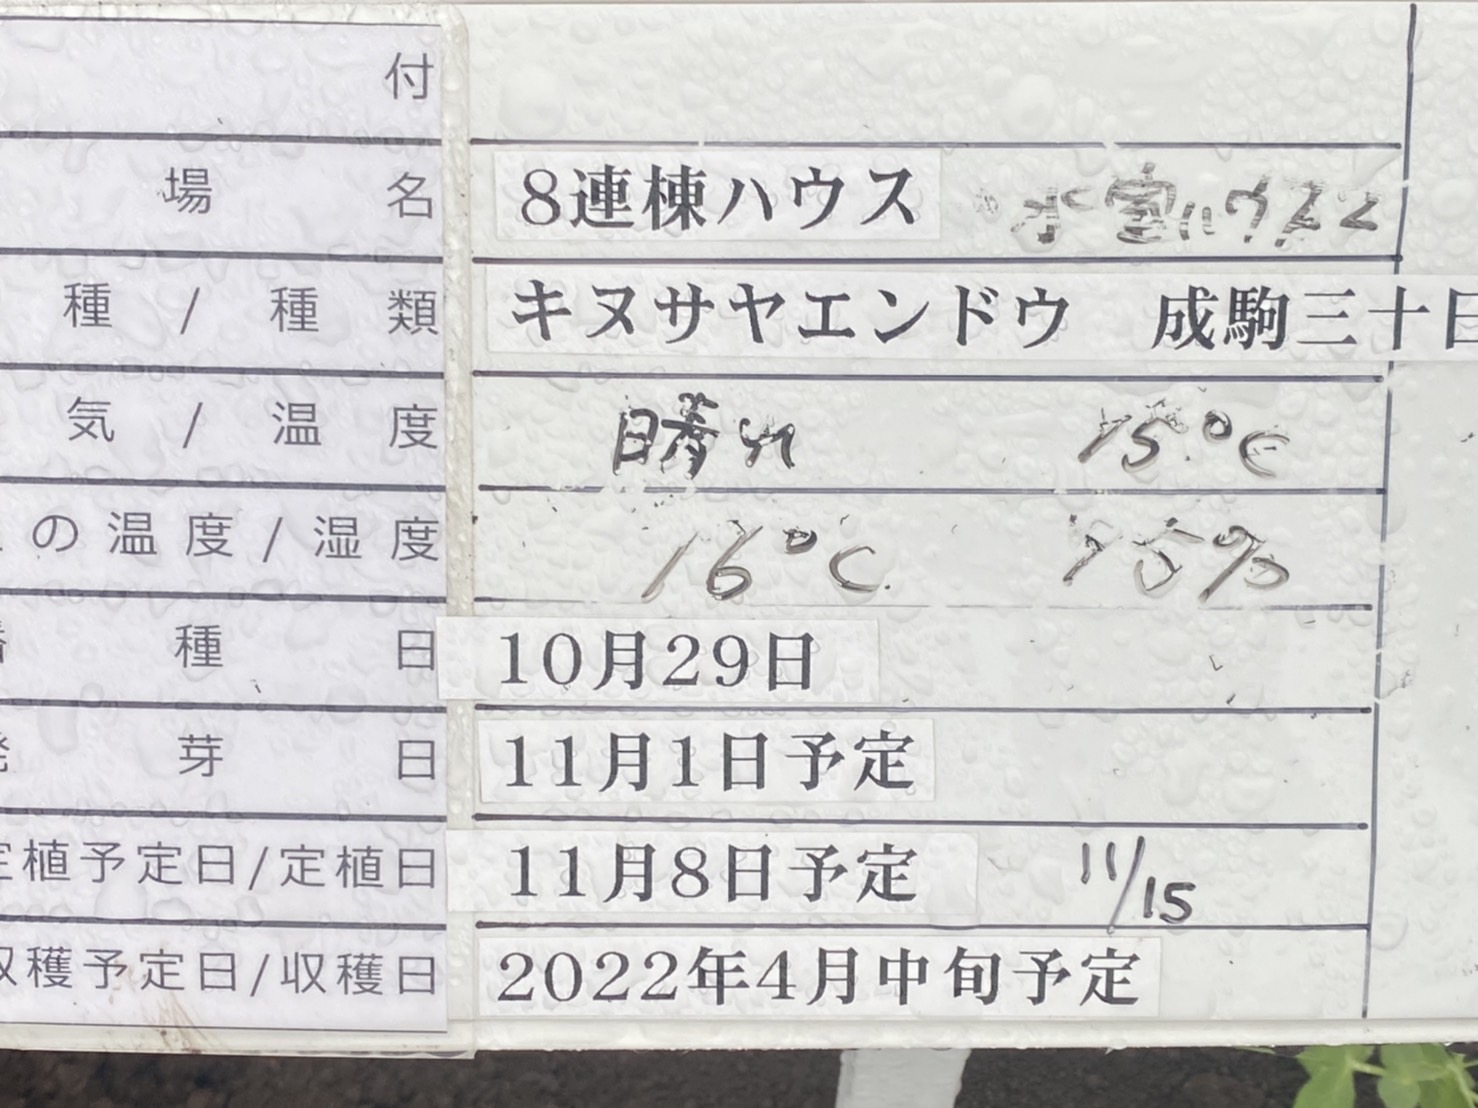 付
場 名 8連棟ハウス
種 / 種 類 キヌサヤエンドウ 成駒三十日
気 / 温 度 晴れ 15℃
の 温 度 / 湿 度 16℃ 75%
種 日 10月29日
芽 日 11月1日予定
定植予定日/定植日 11月8日予定 11/15
収穫予定日/収穫日 2022年4月中旬予定